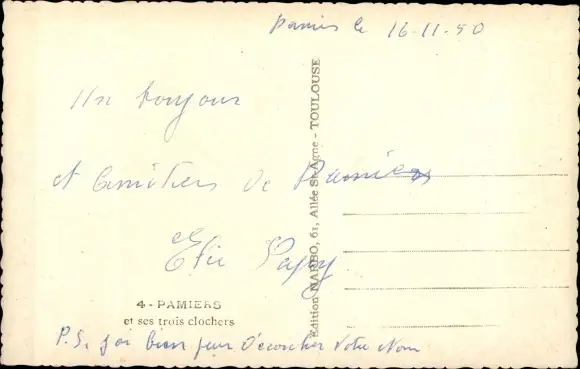 Pamiers le 16-11-50
Un bonjour
et amitiers de Pamiers
Papy
4 - PAMIERS
et ses trois clochers
P.S. j'ai bien peur d'écorcher votre Nom
Édition NARBO, 61, Allée St-Agne - TOULOUSE